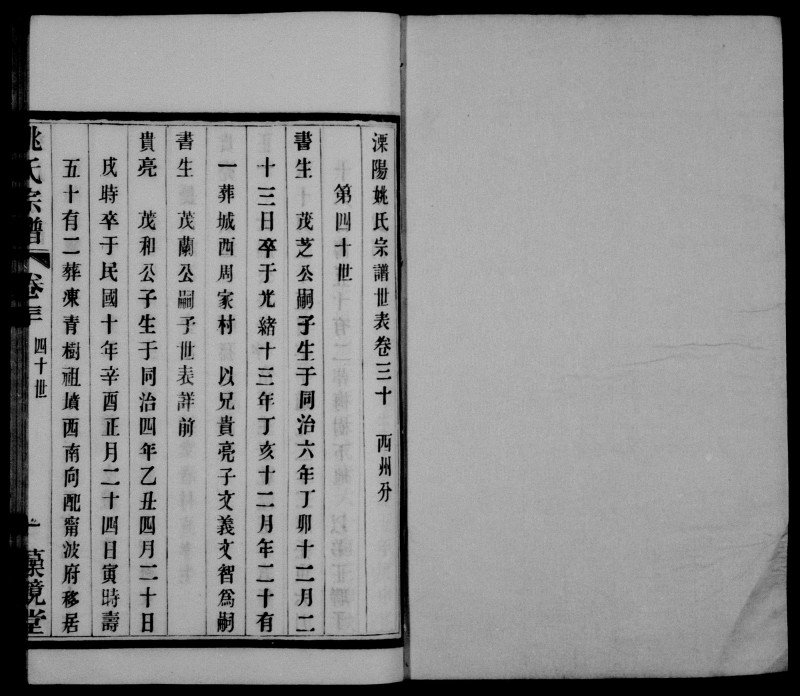 溧陽姚氏宗譜世表卷三十　西州分
第四十世
書生　茂芝公嗣子生于同治六年丁卯十二月二
十三日卒于光緒十三年丁亥十二月年二十有
一葬城西周家村　以兄貴亮子文義文智為嗣
書生　茂蘭公嗣子世表詳前
貴亮　茂和公子生于同治四年乙丑四月二十日
戌時卒于民國十年辛酉正月二十四日寅時壽
五十有二葬凍青樹祖墳西南向配甯波府移居
姚氏宗譜　卷三　四十世　一　堂